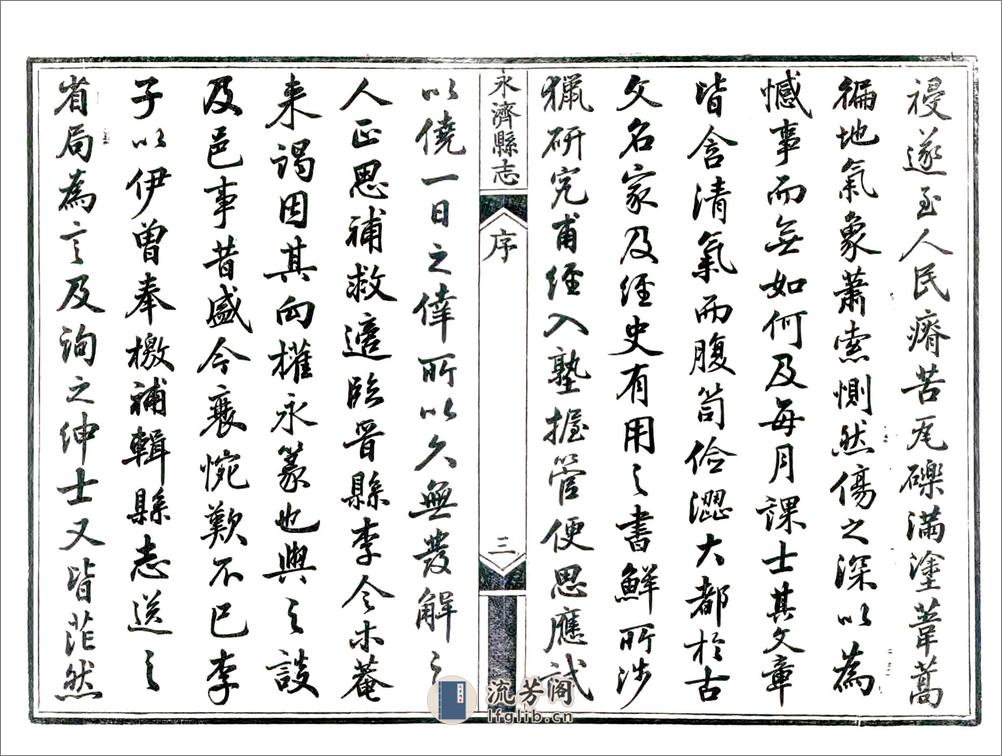 祲遂至人民瘠苦瓦礫滿塗葦蒿
徧地氣象蕭索惻然傷之深以為
憾事而無如何及每月課士其文章
皆含清氣而腹笥儉澀大都於古
文名家及經史有用之書鮮所涉
獵研究甫經入塾握管便思應試
永濟縣志
序
三
以僥一日之倖所以久無發解之
人正思補救適臨晉縣李令木菴
来謁因其向權永篆也與之談
及邑事昔盛今衰惋歎不已李
子以伊曾奉檄補輯縣志送之
省局為言及詢之紳士又皆茫然
流芳阁
lfglib.cn